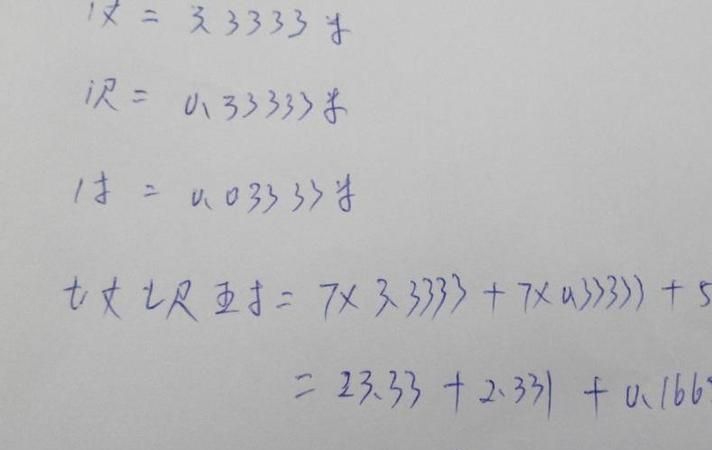 1丈 = 3.3333米
1尺 = 0.33333米
1寸 = 0.03333米
七丈七尺五寸 = 7×3.3333 + 7×0.33333 + 5
= 23.33 + 2.331 + 0.166